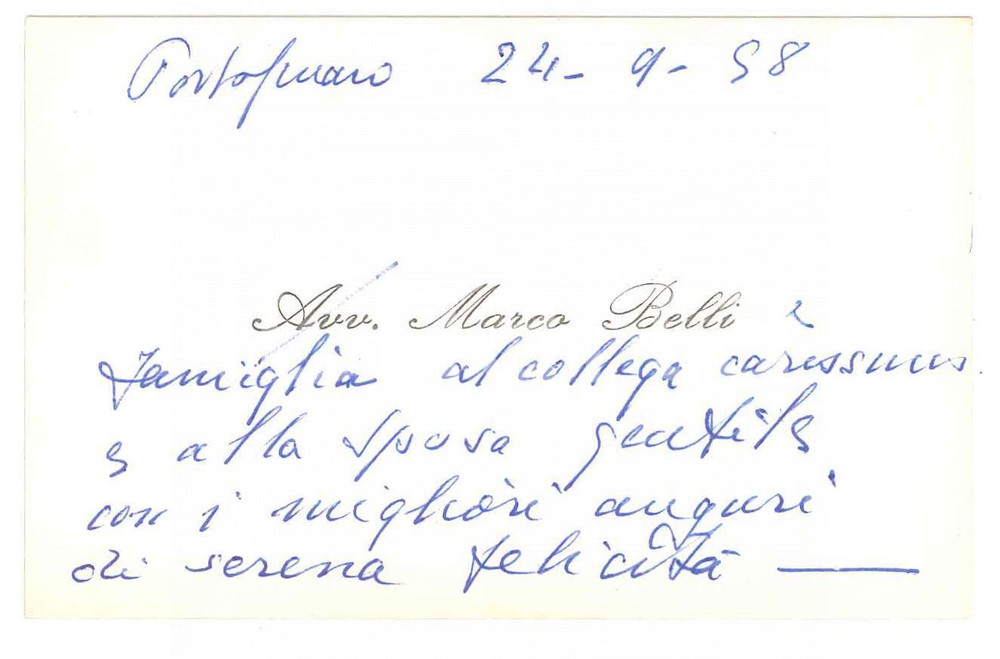 Portogruaro 24-9-58
Avv. Marco Belli e
famiglia al collega carissimo
e alla sposa gentile
con i migliori auguri
di serena felicità